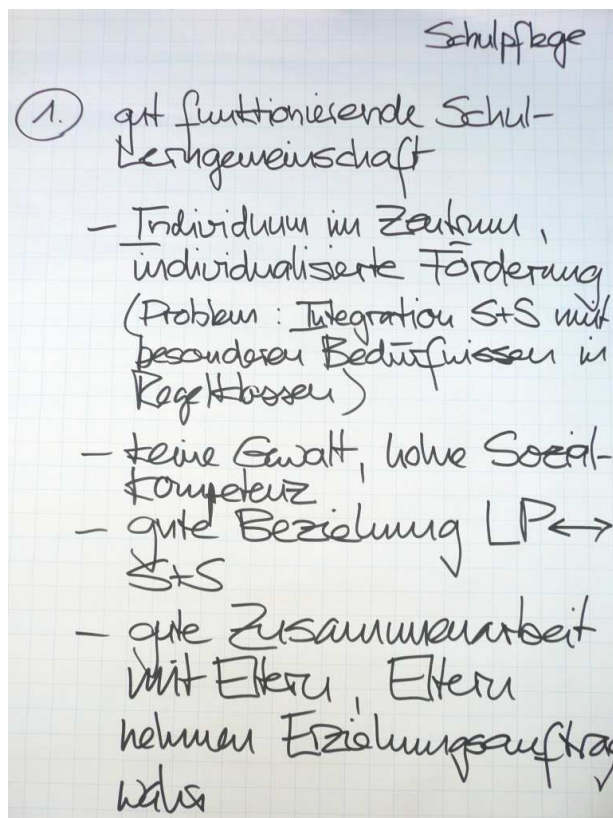 Schulpflege
1. gut funktionierende Schul-
Lerngemeinschaft
- Individuum im Zentrum,
individualisierte Förderung
(Problem : Integration S+S mit
besonderen Bedürfnissen in
Regelklassen)
- keine Gewalt, hohe Sozial-
kompetenz
- gute Beziehung LP ↔
S+S
- gute Zusammenarbeit
mit Eltern, Eltern
nehmen Erziehungsauftrag
wahr